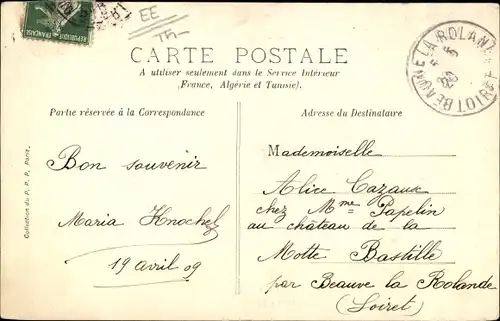 EE
CARTE POSTALE
A utiliser seulement dans le Service Intérieur
(France, Algérie et Tunisie).
Partie réservée à la Correspondance
Adresse du Destinataire
Bon souvenir
Maria Knochel
19 avril 09
Mademoiselle
Alice Cazaux
chez Mme Papelin
au château de la
Motte Bastille
par Beauve la Rolande
(Loiret)
BEAUNE LA ROLANDE
LOIRET
Collection du P. P. P., Paris.